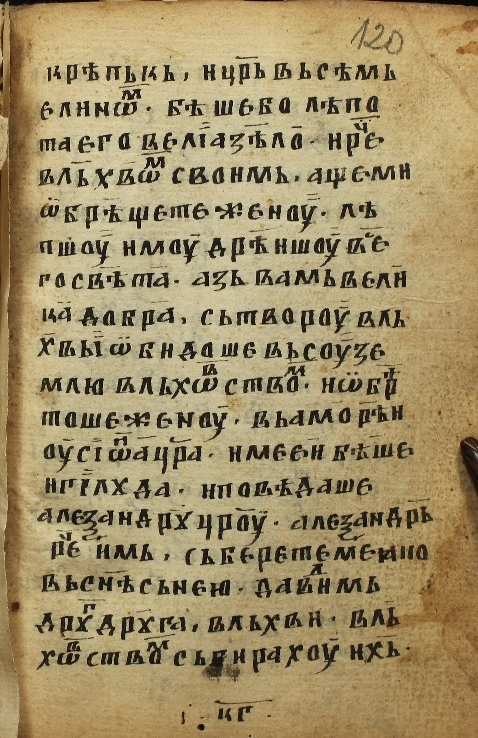 120
крѣпькь, и цр҃ь вьсѣмь
елинѡ҃м. бѣше бо лѣпо
та его веліа зѣло. и рч҃е
вльхвѡ҃м своимь. аще ми
ѡбрѣщете женоу. лѣ
пшоу и моудрѣишоу в҃ье
го свѣта. азь вамь вели
ка добра, сьтвороу вль
хвыѡбидоше вьсоу зе
млю вльхѡ҃вство҃м. и ѡбрѣ҃
тоше женоу. вь аморѣи
оу сіѡ҃на цр҃а. име еи бѣше
игілхда. и поведаше
алеѯандрꙋ цр҃оу. алеѯандрь
рч҃е имь, сьберете ме ꙗко
вь снѣ сь нею. давл҃имь
дрꙋ҃гдрꙋга, вльхви. вль
хѡ҃вство҃м сьбирахоу ихь.
кг